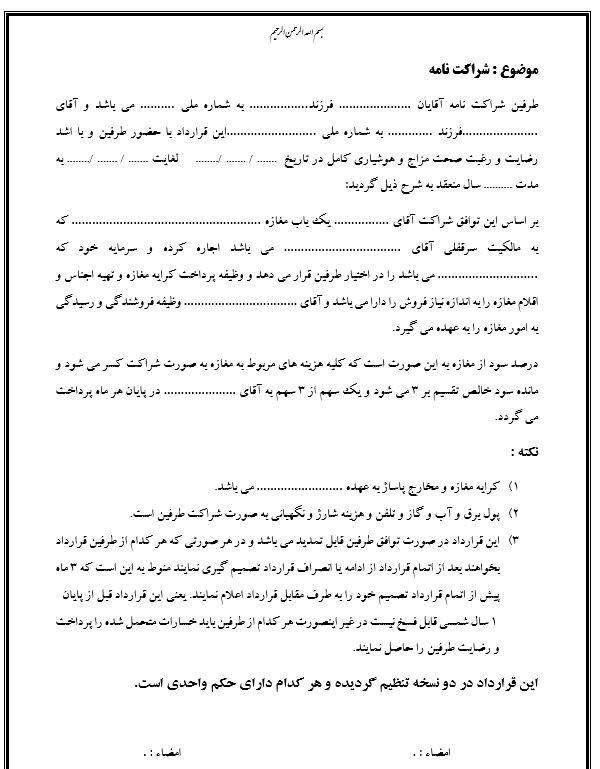 بسم الله الرحمن الرحیم
موضوع : شراکت نامه
طرفین شراکت نامه آقایان ..................... فرزند................. به شماره ملی .......... می باشد و آقای
......................فرزند ............. به شماره ملی ..........................این قرارداد با حضور طرفین و با اشد
رضایت و رغبت صحت مزاج و هوشیاری کامل در تاریخ ....... / ....... /........ لغایت ....... / ....... /........ به
مدت .......... سال منعقد به شرح ذیل گردید:
بر اساس این توافق شراکت آقای ................ یک باب مغازه ....................................................... که
به مالکیت سرقفلی آقای .................................. می باشد اجاره کرده و سرمایه خود که
............................. می باشد را در اختیار طرفین قرار می دهد و وظیفه پرداخت کرایه مغازه و تهیه اجناس و
اقلام مغازه را به اندازه نیاز فروش را دارا می باشد و آقای ................................. وظیفه فروشندگی و رسیدگی
به امور مغازه را به عهده می گیرد.
درصد سود از مغازه به این صورت است که کلیه هزینه های مربوط به مغازه به صورت شراکت کسر می شود و
مانده سود خالص تقسیم بر ۳ می شود و یک سهم از ۳ سهم به آقای ..................... در پایان هر ماه پرداخت
می گردد.
نکته :
۱) کرایه مغازه و مخارج پاساژ به عهده ......................... می باشد.
۲) پول برق و آب و گاز و تلفن و هزینه شارژ و نگهبانی به صورت شراکت طرفین است.
۳) این قرارداد در صورت توافق طرفین قابل تمدید می باشد و در هر صورتی که هر کدام از طرفین قرارداد
بخواهند بعد از اتمام قرارداد از ادامه یا انصراف قرارداد تصمیم گیری نمایند منوط به این است که ۳ ماه
پیش از اتمام قرارداد تصمیم خود را به طرف مقابل قرارداد اعلام نمایند. یعنی این قرارداد قبل از پایان
۱ سال شمسی قابل فسخ نیست در غیر اینصورت هر کدام از طرفین باید خسارات متحمل شده را پرداخت
و رضایت طرفین را حاصل نمایند.
این قرارداد در دو نسخه تنظیم گردیده و هر کدام دارای حکم واحدی است.
امضاء : . امضاء : .